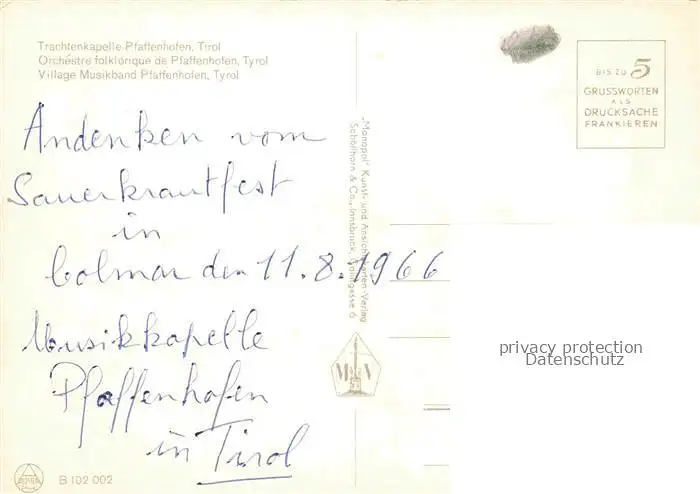 Trachtenkapelle Pfaffenhofen, Tirol
Orchestre folklorique de Pfaffenhofen, Tyrol
Village Musikband Pfaffenhofen, Tyrol
Andenken vom
Sauerkrautfest
in
Colmar den 11.8.1966
Musikkapelle
Pfaffenhofen
in Tirol
B 102 002
"Monopol" Kunst- und Ansichtskarten-Verlag
Schöllhorn & Co., Innsbruck,
M V
BIS ZU 5
GRUSSWORTEN
ALS
DRUCKSACHE
FRANKIEREN
privacy protection
Datenschutz